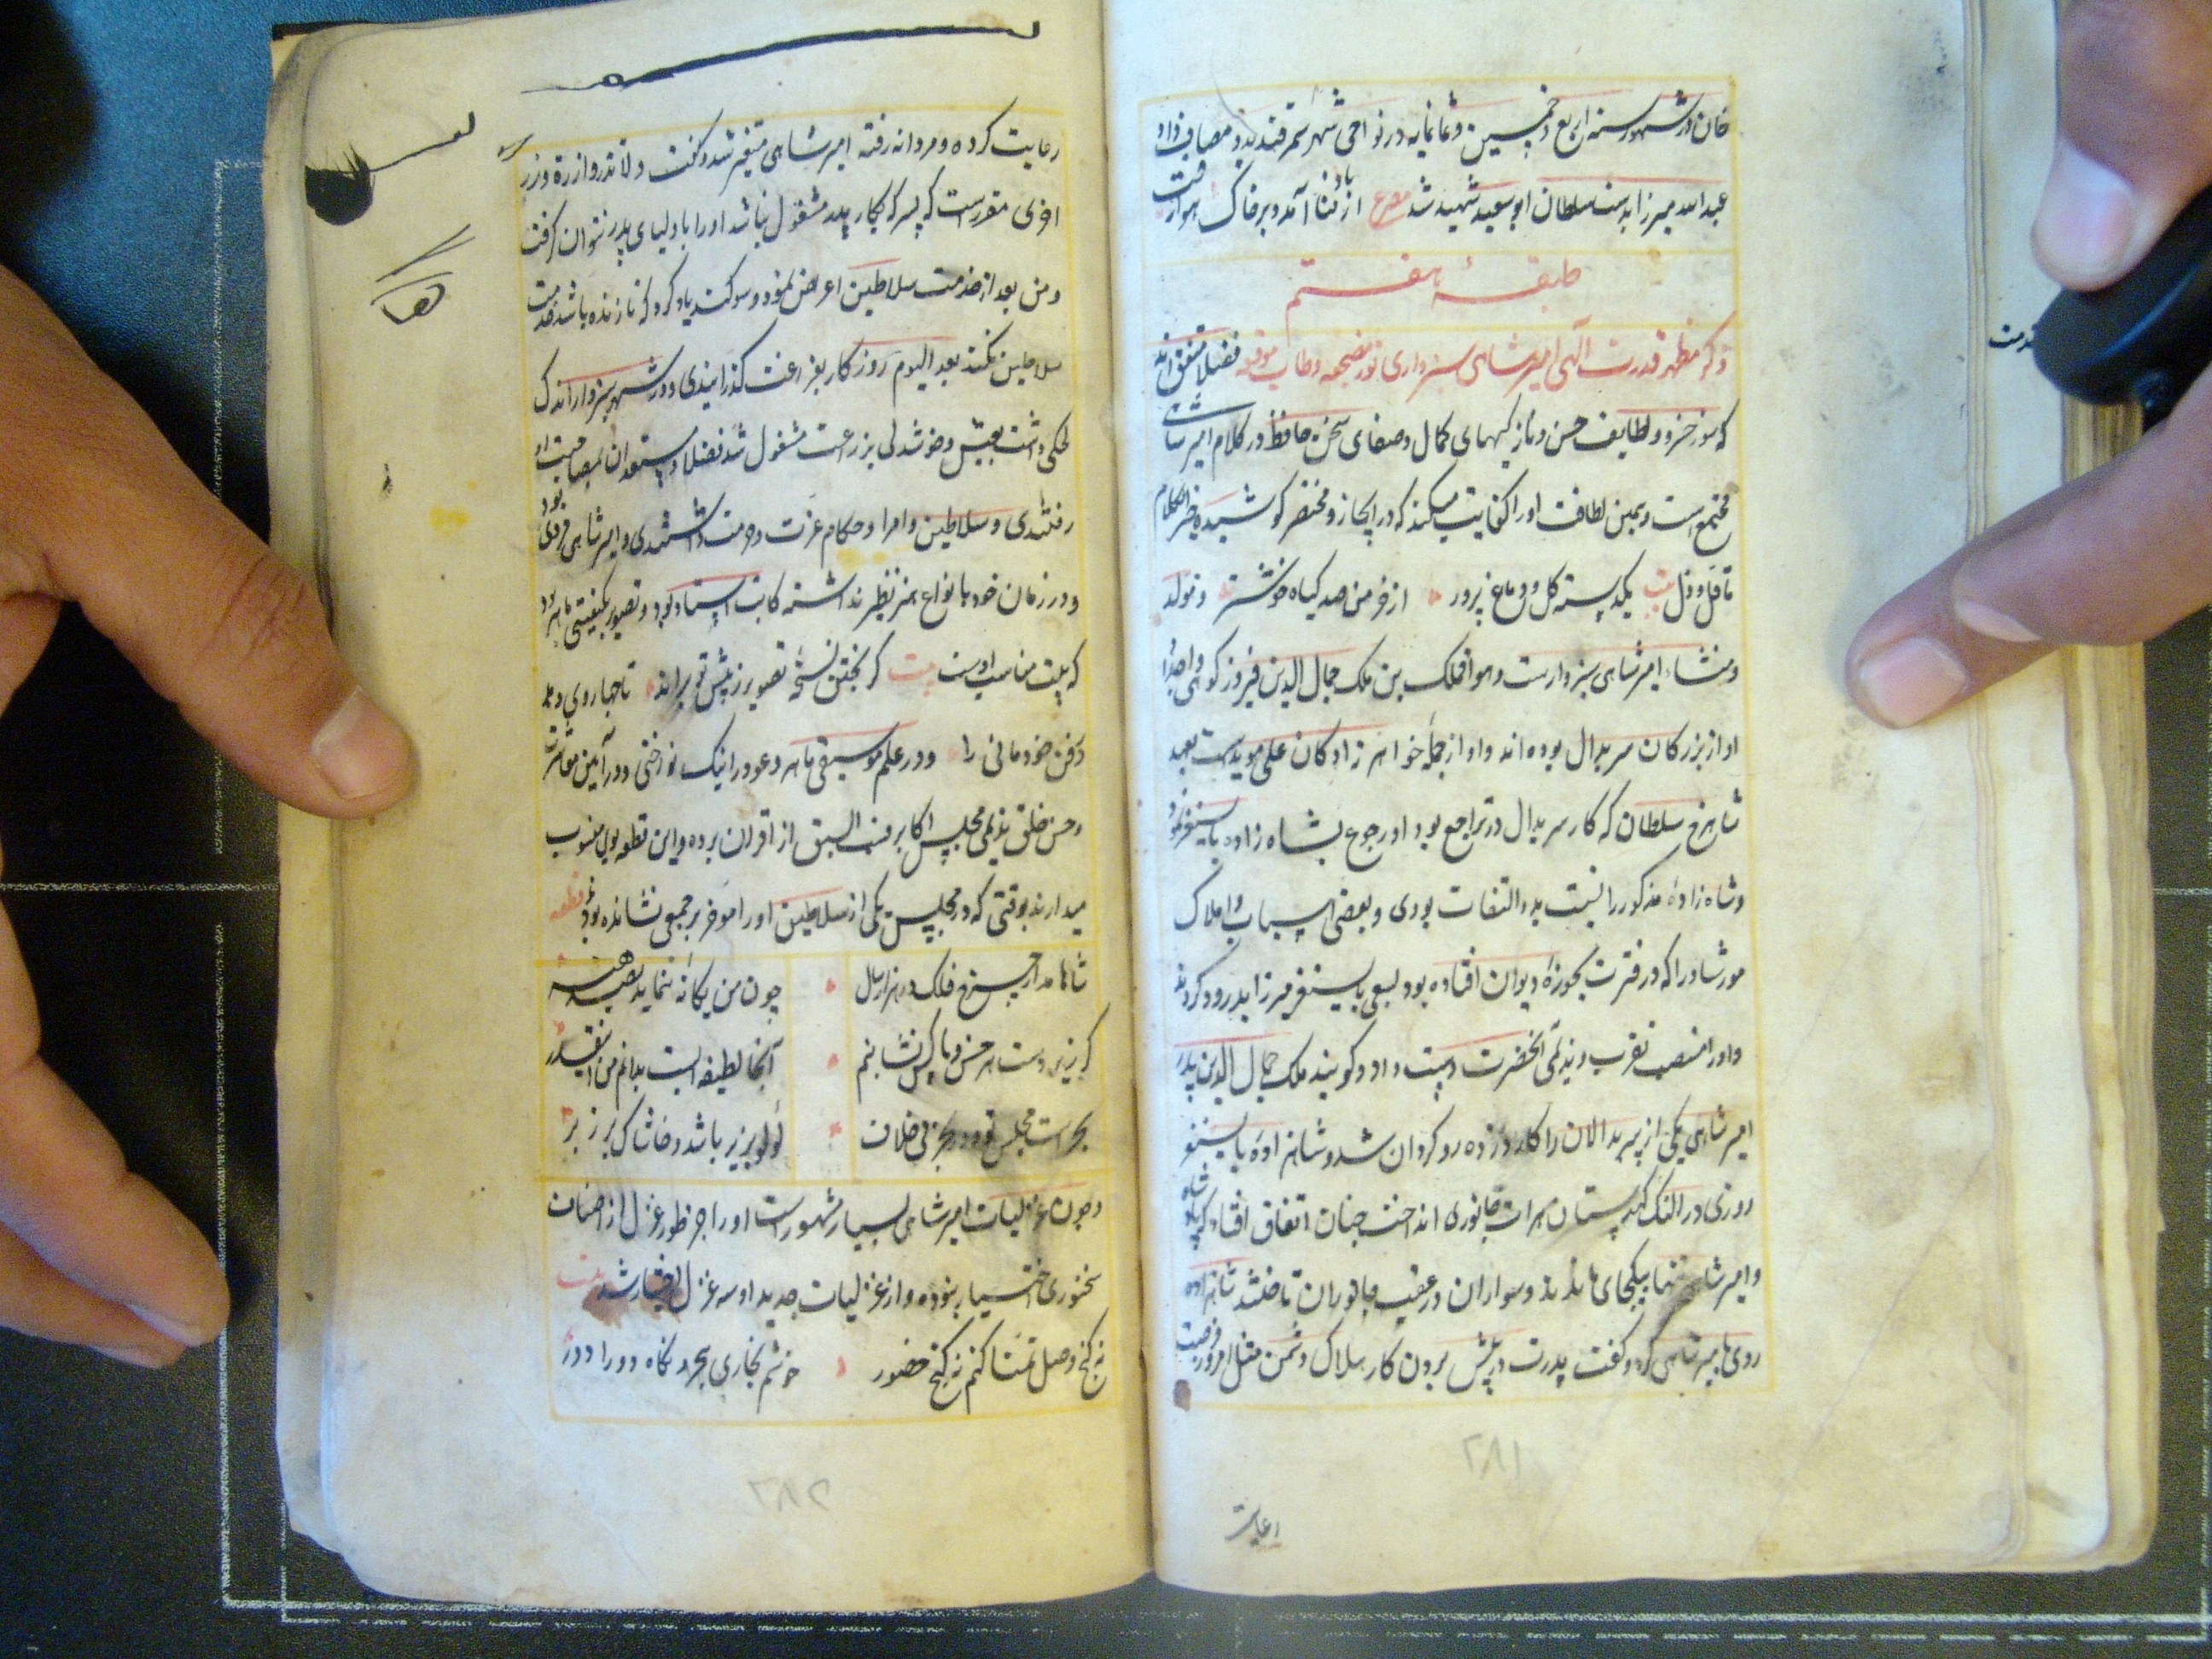 خان در شهور سنه اربع و خمسین و ثمانمایه در نواحی شهر سمرقند بدو مصاف داد
عبدالله میرزا بدست سلطان ابو سعید شهید شد مصرع از باد فنا آمد و بر خاک هوا رفت
طبقهٔ هفتم
ذکر مظهر قدرت الهی امیر شاهی سبزواری نور مضجعه و طاب مرقده فضلا متفق اند
که سوز خسرو و لطایف حسن و نازکیهای کمال و صفای سخن حافظ در کلام امیر شاهی
مجتمع است و همین لطافت او را کفایت میکند که در ایجاز و مختصر کوشیده خیر الکلام
ما قل و دل بیت یکدسته کل دماغ پرور از خرمن صد کیاه خوشتر و مولد
و منشاء امیر شاهی سبزوارست و هو اقملک بن ملک جمال الدین فیروزکوهی و اجداد
او از بزرکان سربدال بوده اند و او از جملهٔ خواهر زادکان علی مویدست بعهد
شاهرخ سلطان که کار سربدال در تراجع بود او رجوع بشاه زاده بایسنغر نمود
و شاه زادهٔ مذکور را نسبت بدو التفات بودی و بعضی اسباب و املاک
مورث او را که در فترت بحوزهٔ دیوان افتاده بود بسعی بایسنغر میرزا بدو رد کردند
و او را منصب تقرب و ندیمی آنحضرت دست داد و کویند ملک جمال الدین پدر
امیر شاهی یکی از سربدالان را کارد زده رو کردان شد و شاهزاده بایسنغر
روزی در النک کهدستان هرات جانوری انداخت چنان اتفاق افتاد که شاه زاده
و امیر شاهی تنها بیکجای ماندند و سواران در عقب جانوران تاختند شاهزاده
روی بامیر شاهی کرد و کفت پدرت در پیش بردن کار هلاک دشمن مثل امروز فرصت
۲۸۱
رعایت
رعایت کرده و مردانه رفته امیر شاهی متغیر شد و کفت و لا تزر وازرة وزر
اخری مقررست که پسر که بکار پدر مشغول نباشد او را باولیای پدر نتوان کرفت
و من بعد از خدمت سلاطین اعراض نمود و سوکند یاد کرد که تا زنده باشد خدمت
سلاطین نکند بعد الیوم روزکار بفراغت کذرانیدی و در شهر سبزوار اندک
ملکی داشت بعیش و خوشدلی بزراعت مشغول شد فضلا و مستعدان بمصاحبت او
رفتندی و سلاطین و امرا و حکام عزت و حرمت داشتندی و امیر شاهی مردی بود
و در زمان خود بانواع هنر نظیر نداشته کاتب استاد بود و تصویر بکیفیتی ماهر بود
که بیت مناسب اوست بیت کر بچین نسخهٔ تصویر ز پیش تو برند تا چها روی دهد
در فن خود مانی را و در علم موسیقی ماهر و عود را نیک نواختی و در آیین معاشرت
و حسن خلق و ندیمی مجلس اکابر قصب السبق از اقران برده و این قطعه بوی منسوب
میدارند بوقتی که در مجلس یکی از سلاطین او را موخر بر جمعی نشانده بود قطعه
شاها مدار چرخ فلک در هزار سال چون من یکانه ننماید بصد هنر
کر زیر دست هر خس و ناکس نشانیم آنجا لطیفه ایست بدانم من اینقدر
بحرست مجلس تو و در بحر بی خلاف لولو بزیر باشد و خاشاک بر زبر
و چون غزلیات امیر شاهی بسیار مشهورست او را جز طور غزل از اصناف
سخنوری اختیار نبوده و از غزلیات جدید او سه غزل اختیار شد بیت
نه کنج وصل تمنا کنم نه کنج حضور خوشم بخاری هجر و نکاه دورا دور
۲۸۲